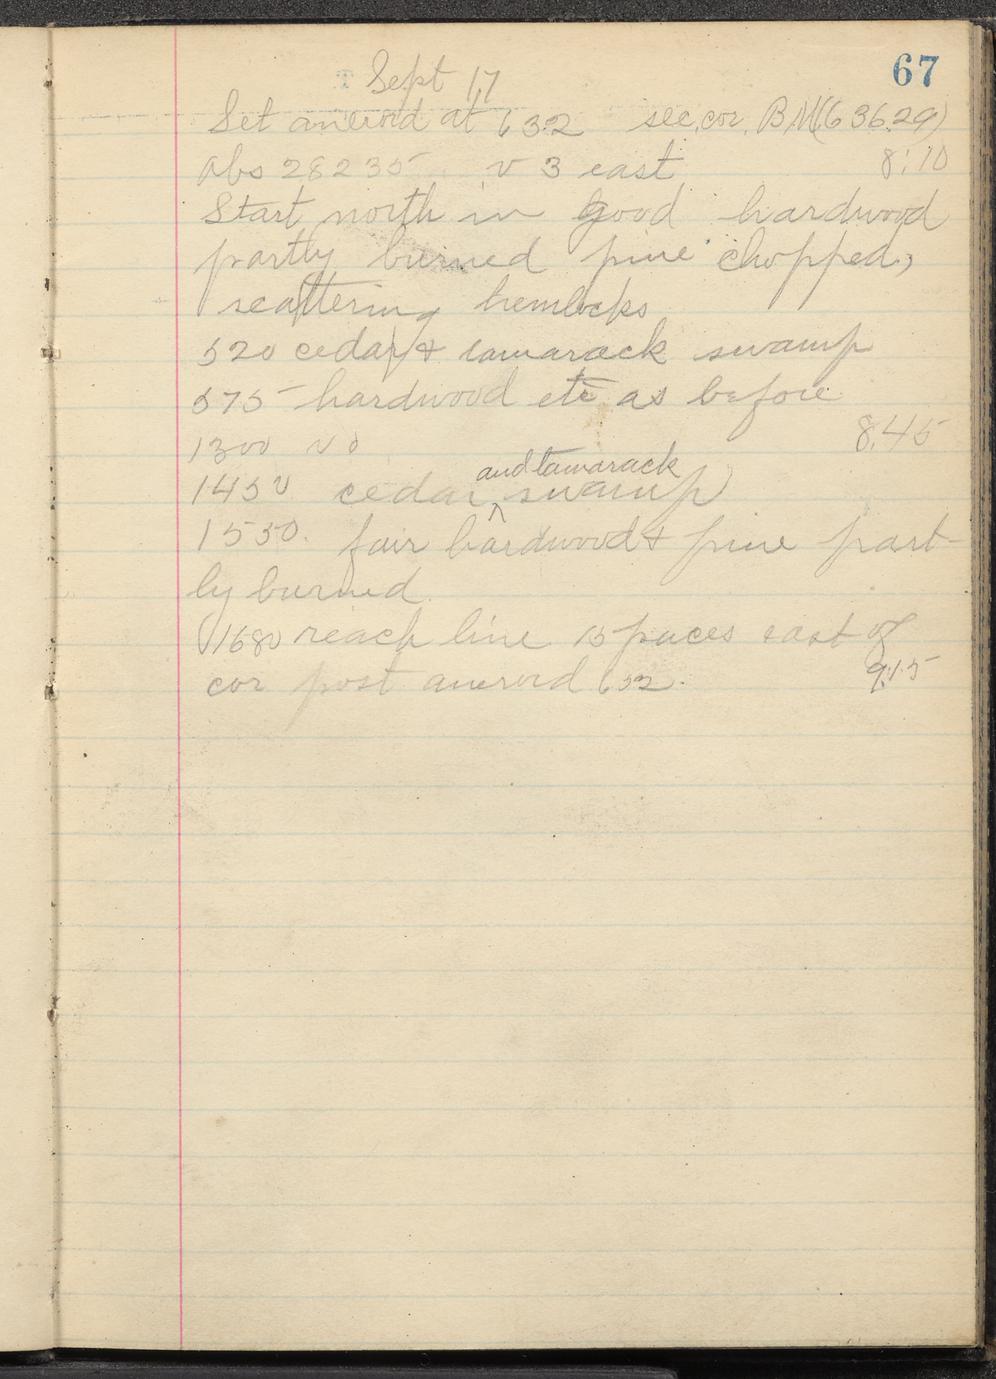 67
Sept 17
Set aneroid at 632 sec. cor. B M (636.29)
Abs 28235 v 3 east 8:10
Start north in good hardwood
partly burned pine chopped,
scattering hemlocks
520 cedar & tamarack swamp
575 hardwood etc as before
1300 v o 8.45
and tamarack
1450 cedar ^ swamp
1550. fair hardwood & pine part-
ly burned
1680 reach line 15 paces east of
cor post aneroid 652. 9.15